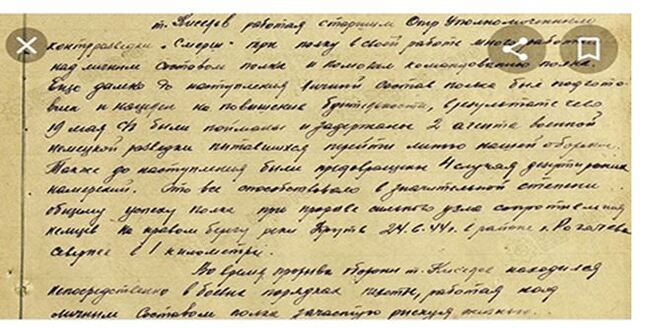 т. Киселев работая старшим Опер Уполномоченным
контрразведки "Смерш" при полку в своей работе много работал
над личным составом полка и помогал командованию полка.
Еще далеко до наступления личный состав полка был подгото-
влен и нацелен на повышение бдительности, в результате чего
19 мая с/г были пойманы и задержаны 2 агента военной
немецкой разведки пытавшихся перейти линию нашей обороны.
Также до наступления были предотвращены 4 случая дезертирских
намерений. Это все способствовало в значительной степени
общему успеху полка при прорыве сильного узла сопротивления
немцев на правом берегу реки Друть 24.6.44г. в районе г. Рогачева
севернее в 1 километре.
Во время прорыва обороны т. Киселев находился
непосредственно в боевых порядках пехоты, работая над
личным составом полка зачастую рискуя жизнью.